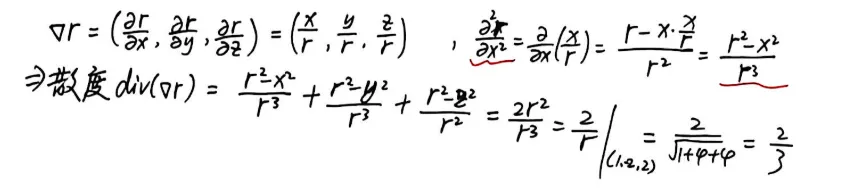 ∇r = (∂r/∂x, ∂r/∂y, ∂r/∂z) = (x/r, y/r, z/r) , ∂²r/∂x² = ∂/∂x(x/r) = (r - x·x/r)/r² = (r²-x²)/r³
⇒散度 div(∇r) = (r²-x²)/r³ + (r²-y²)/r³ + (r²-z²)/r² = 2r²/r³ = 2/r |(1,-2,2) = 2/√(1+4+4) = 2/3